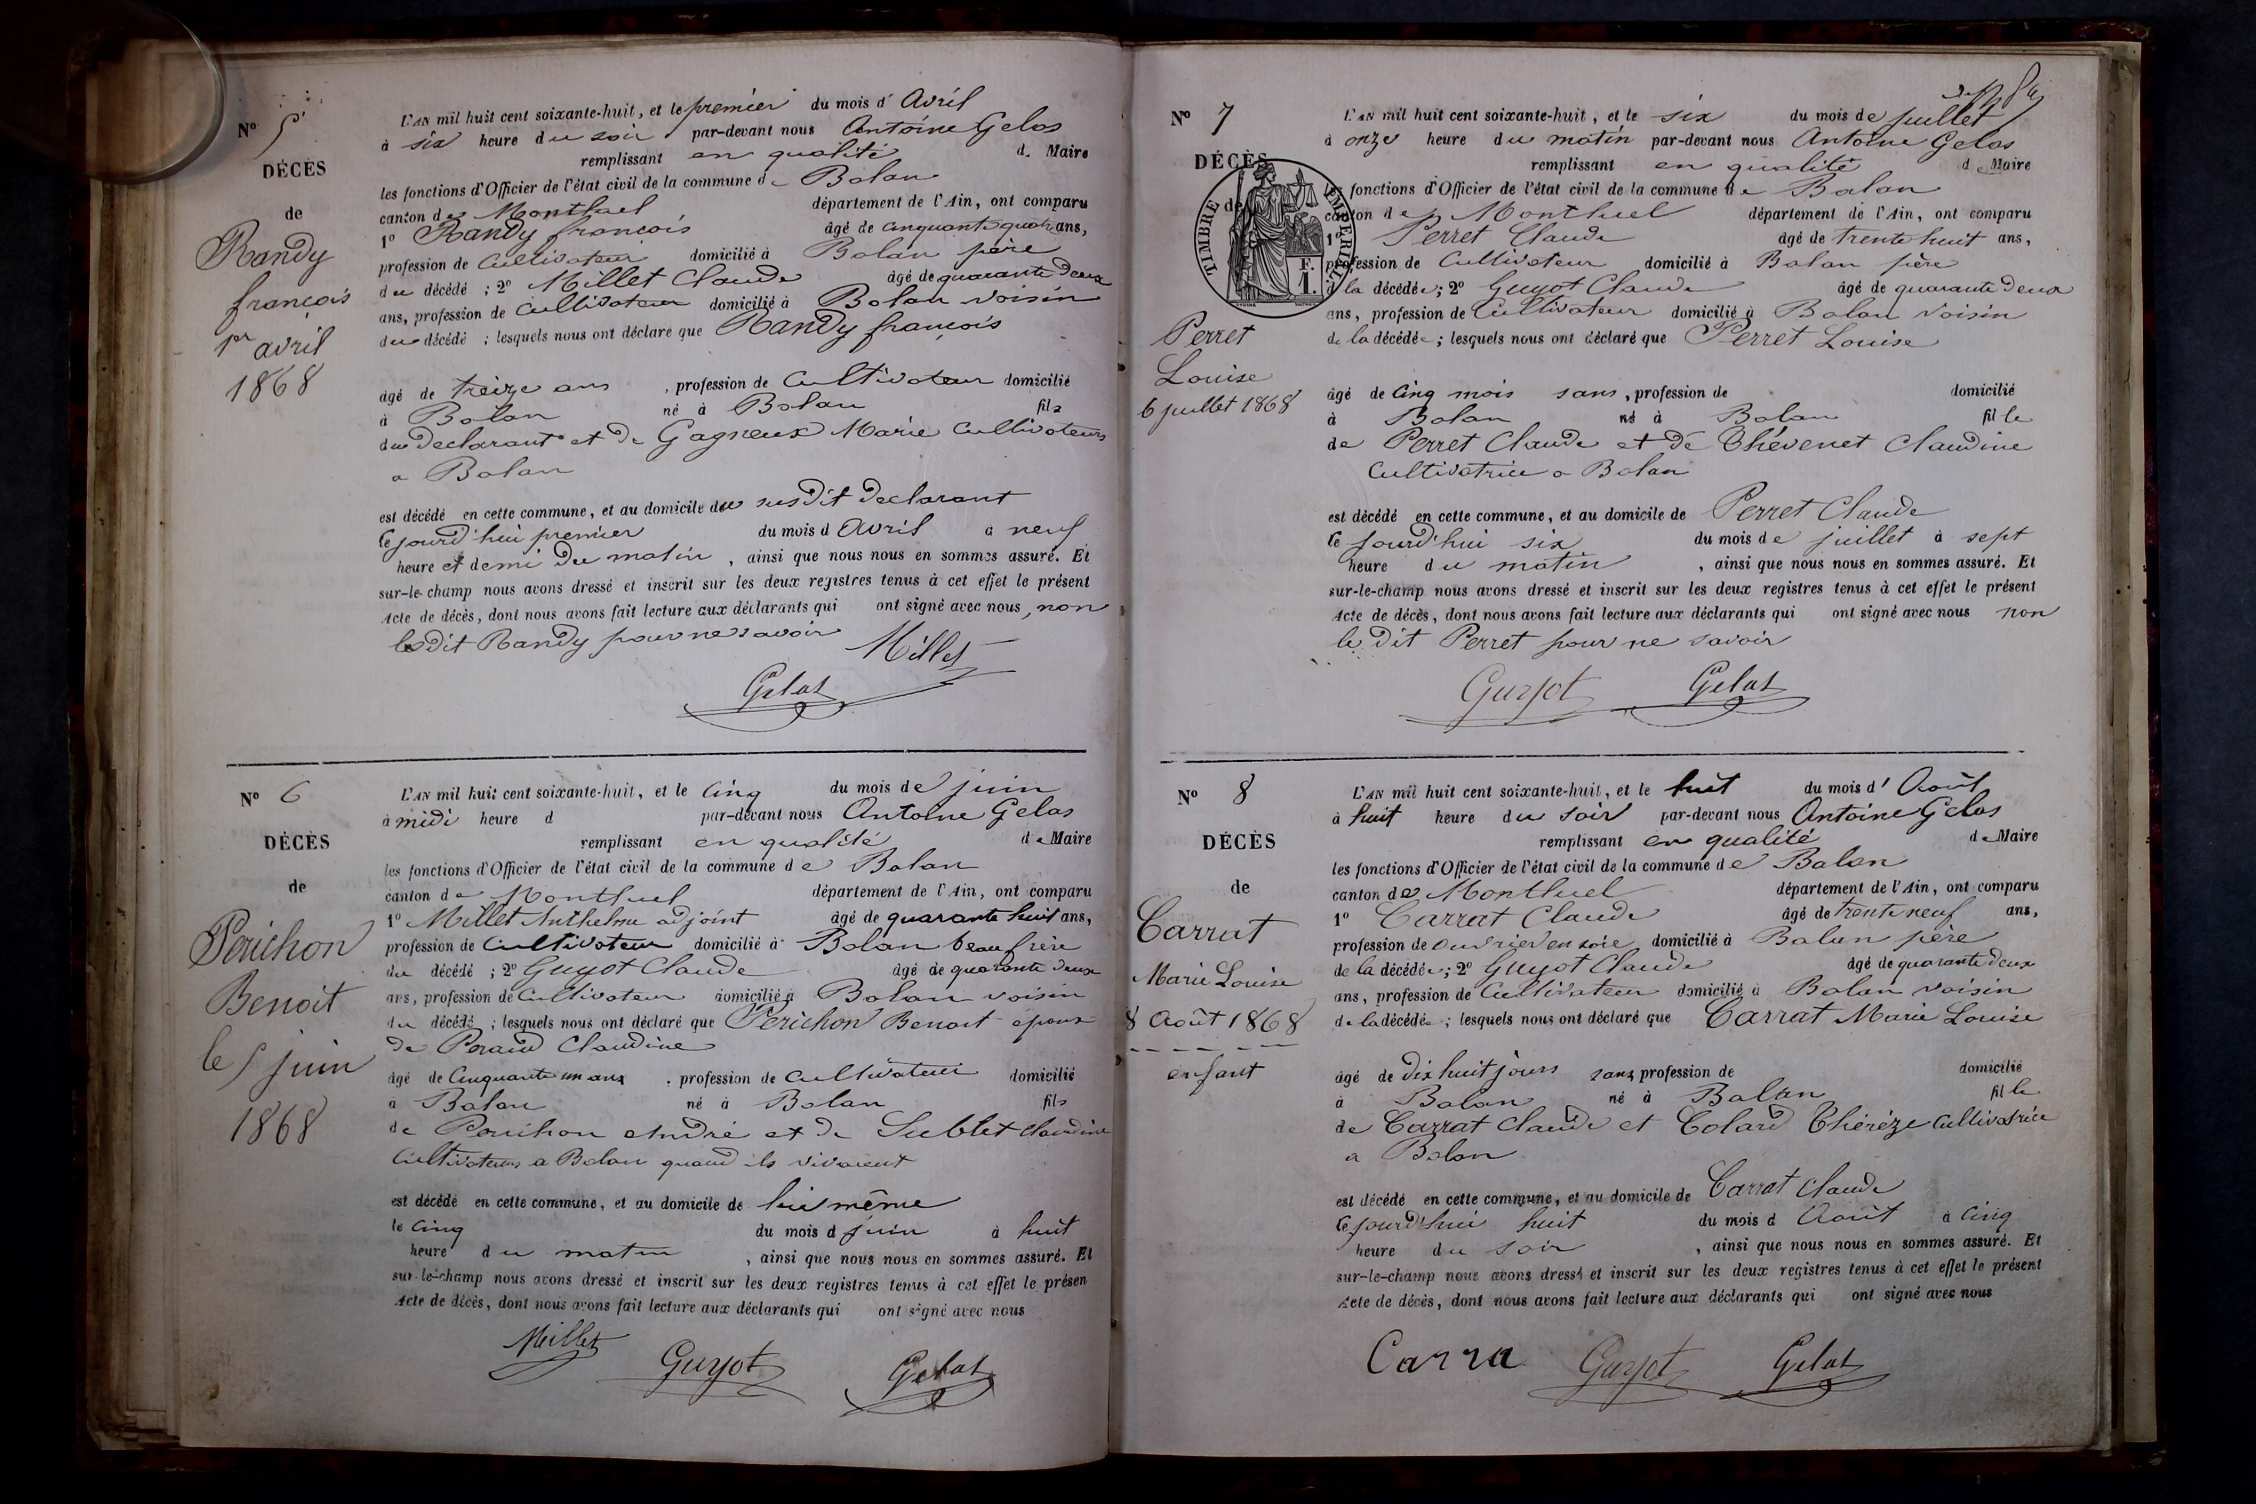 Nº 5
DÉCÈS
de
Randy
françois
1er avril
1868
L'AN mil huit cent soixante-huit, et le premier du mois d' Avril
à six heure du soir par-devant nous Antoine Gelas
remplissant en qualité de Maire
les fonctions d'Officier de l'état civil de la commune de Balan
canton de Montluel département de l'Ain, ont comparu
1º Randy françois âgé de cinquante quatre ans,
profession de Cultivateur domicilié à Balan père
du décédé ; 2º Millet Claude âgé de quarante deux
ans, profession de Cultivateur domicilié à Balan voisin
du décédé ; lesquels nous ont déclaré que Randy françois
âgé de treize ans , profession de Cultivateur domicilié
à Balan né à Balan fils
du declarant et de Gagneux Marie Cultivateurs
a Balan
est décédé en cette commune, et au domicile du susdit declarant
ce jourd'hui premier du mois d Avril à neuf
heure et demi du matin , ainsi que nous nous en sommes assuré. Et
sur-le-champ nous avons dressé et inscrit sur les deux registres tenus à cet effet le présent
Acte de décès, dont nous avons fait lecture aux déclarants qui ont signé avec nous, non
ledit Randy pour ne savoir
Millet
Gelas
Nº 6
DÉCÈS
de
Perichon
Benoit
le 5 juin
1868
L'AN mil huit cent soixante-huit, et le cinq du mois de juin
à midi heure d par-devant nous Antoine Gelas
remplissant en qualité de Maire
les fonctions d'Officier de l'état civil de la commune de Balan
canton de Montluel département de l'Ain, ont comparu
1º Millet Anthelme adjoint âgé de quarante huit ans,
profession de Cultivateur domicilié à Balan beau frère
du décédé ; 2º Guyot Claude âgé de quarante deux
ans, profession de Cultivateur domicilié à Balan voisin
du décédé ; lesquels nous ont déclaré que Perichon Benoit époux
de Peraud Claudine
âgé de Cinquante un ans , profession de Cultivateur domicilié
à Balan né à Balan fils
de Perichon André et de Sublet Claudine
Cultivateurs a Balan quand ils vivaient
est décédé en cette commune, et au domicile de lui même
le cinq du mois d juin à huit
heure du matin , ainsi que nous nous en sommes assuré. Et
sur-le-champ nous avons dressé et inscrit sur les deux registres tenus à cet effet le présen
Acte de décès, dont nous avons fait lecture aux déclarants qui ont signé avec nous
Millet Guyot Gelas
Nº 7
DÉCÈS
de
TIMBRE IMPERIAL
F.
1.
Perret
Louise
6 juillet 1868
L'AN mil huit cent soixante-huit, et le six du mois de juillet
à onze heure du matin par-devant nous Antoine Gelas
remplissant en qualité de Maire
les fonctions d'Officier de l'état civil de la commune de Balan
canton de Montluel département de l'Ain, ont comparu
1º Perret Claude âgé de trente huit ans,
profession de Cultivateur domicilié à Balan père
d la décédée ; 2º Guyot Claude âgé de quarante deux
ans, profession de Cultivateur domicilié à Balan voisin
de la décédée ; lesquels nous ont déclaré que Perret Louise
âgé de cinq mois sans , profession de domicilié
à Balan né à Balan fille
de Perret Claude et de Thévenet Claudine
Cultivatrice a Balan
est décédé en cette commune, et au domicile de Perret Claude
ce jourd'hui six du mois de juillet à sept
heure du matin , ainsi que nous nous en sommes assuré. Et
sur-le-champ nous avons dressé et inscrit sur les deux registres tenus à cet effet le présent
Acte de décès, dont nous avons fait lecture aux déclarants qui ont signé avec nous non
le dit Perret pour ne savoir
Guyot Gelas
Nº 8
DÉCÈS
de
Carrat
Marie Louise
8 Août 1868
enfant
L'AN mil huit cent soixante-huit, et le huit du mois d' Août
à huit heure du soir par-devant nous Antoine Gelas
remplissant en qualité de Maire
les fonctions d'Officier de l'état civil de la commune de Balan
canton de Montluel département de l'Ain, ont comparu
1º Carrat Claude âgé de trente neuf ans,
profession de ouvrier en soie domicilié à Balan père
de la décédée ; 2º Guyot Claude âgé de quarante deux
ans, profession de Cultivateur domicilié à Balan voisin
de la décédée ; lesquels nous ont déclaré que Carrat Marie Louise
âgé de dix huit jours sans profession de domicilié
à Balan né à Balan fille
de Carrat Claude et Colard Thérèze Cultivatrice
a Balan
est décédé en cette commune, et au domicile de Carrat Claude
ce jourd'hui huit du mois d Août à cinq
heure du soir , ainsi que nous nous en sommes assuré. Et
sur-le-champ nous avons dressé et inscrit sur les deux registres tenus à cet effet le présent
Acte de décès, dont nous avons fait lecture aux déclarants qui ont signé avec nous
Carra Guyot Gelas